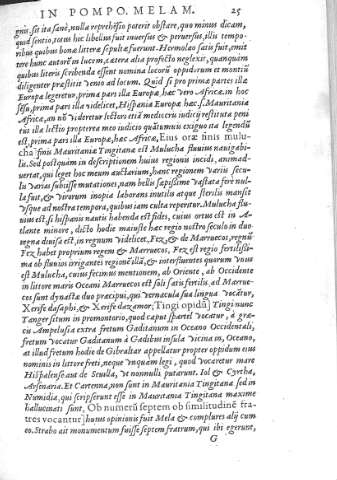 IN POMPO. MELAM. 25
gnis, set ita sanè, nulla reprehēsio poterit obstare, quo minus dicam,
quod sentio, totus hoc libellus fuit inuersus & peruersus, illis tempo-
ribus quibus bonæ litteræ sepultæ fuerunt. Hermolao satis fuit, emit
tere hunc autorē in lucem, cætera alia profectò neglexit, quanquam
quibus literis scribenda essent nomina locorū oppidorum et montiū
diligenter præstitit
Europa legeretur, prima pars illa Europæ, hæc vero Africæ, in hoc
sēsu, prima pars illa videlicet, Hispania Europæ hæc s. Mauritania
Africæ, an nō videretur lectori etiā mediocru iudicij restituta peni
tus illa lectio propterea meo iudicio quātumuis exiguo ita legendū
est, prima pars illa Europæ, hæc Africæ, Eius oræ finis mulu-
cha finis Mauritaniæ Tingitanæ est Mulucha fluuius nauigabi-
lis. Sed postquam in descriptionem huius regionis incidi, animad-
uertat, qui leget hoc meum auctarium, hanc regionem varijs secu-
lis varias subijsse mutationes, nam bellis sæpissime vastata ferè nul-
la fuit, & virorum inopia laborans inutilis atque sterilis mansit
vsque ad nostra tempora, quibus iam culta reperitur. Mulucha flu-
uius est. si hispanis nautis habenda est fides, cuius ortus est in At-
lante minore, dicto hodie maiuste hæc regio nostro seculo in duo-
regna diuisa est, in regnum videlicet, Fez, & de Marruecos, regnū
Fez habet proprium regem & Marruecos, Fez est regio fertilissi-
ma ob fluuios irrigantes regionē illā, & interfluentes quorum vnus
est Mulucha, cuius fecimus mentionem, ab Oriente, ab Occidente
in littore maris Oceani Marruecos est soli satis fertilis, ad Marrue-
cos sunt dynastæ duo præcipui, qui vernacula sua lingua vocātur,
Xerife dasaphi, & Xerife dazamor, Tingi opidū] Tingi nunc
Tanger situm in promontorio, quod caput spartel vocatur, à græ-
cis Ampelusia extra fretum Gaditanum in Oceano Occidentali,
fretum vocatur Gaditanum à Gadibus insula vicina in, Oceano,
at illud fretum hodie de Gibraltar appellatur propter oppidum eius
nominis in littore freti, neque vnquam legi, quod vocaretur mare
Hispalense aut de Seuilla, vt nonnulli putarunt. Iol & Cyrtha,
Arsenaria. Et Cartenna, non sunt in Mauritania Tingitana sed in
Numidia, qui scripserunt esse in Mauritania Tingitana maxime
hallucinati sunt, Ob numerū septem ob similitudinē fra-
tres vocantur] huius opinionis fuit Mela & complures alij cum
eo. Strabo ait monumentum fuisse septem fratrum, qui ibi egerunt,
G